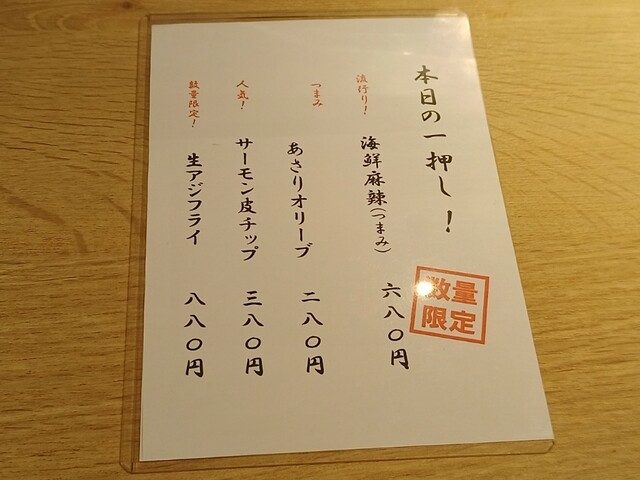 本日の一押し！
数量
限定
流行り！
海鮮麻辣(つまみ)
六八〇円
つまみ
あさりオリーブ
二八〇円
人気！
サーモン皮チップ
三八〇円
数量限定！
生アジフライ
八八〇円